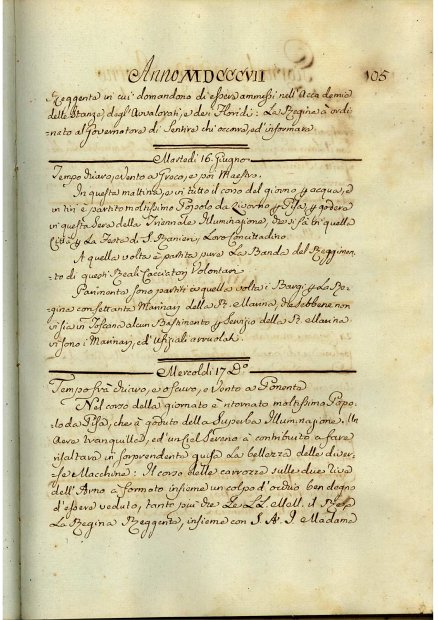 Anno MDCCCVII 105
Reggente in cui domandono di essere ammessi nell'Accademia
delle Stanze degl'Avvalorati, e dei Floridi: La Regina à ordi-
nato al Governatore di Sentire chi occorre, ed informare
Martedi 16. Giugno
Tempo chiaro, e Vento a Greco, e poi Maestro.
In questa mattina, e in tutto il corso del giorno p acqua, e
in tiri è partito moltissimo Popolo da Livorno p Pisa, p godere
in questa Sera della Triennale Illuminazione, che si fà in quella
Città p La Festa di S. Ranieri, Loro Concittadino.
A quella volta è partita pure La Banda del Reggimen-
to di questi Reali Cacciatori Volontari
Parimente sono partiti a quella volta i Bargi p La Re-
gina con settanta Marinari della R. Marina, che sebbene non
vi sia in Toscana alcun Bastimento p Servizio della R. Marina
vi sono i Marinari, ed Ufiziali arruolati.
Mercoldi 17. Do.
Tempo frà chiaro, e oscuro, e Vento a Ponente
Nel corso della giornata è ritornato moltissimo Popo-
lo da Pisa, che à goduto della Superba Illuminazione. Un
Aere tranquillo, ed un Ciel Sereno à contribuito a fare
risaltare in sorprendente guisa La bellezza delle diver-
se Macchine: Il corso delle carrozze sulle due Rive
dell'Arno à formato insieme un colpo d'occhio ben degno
d'essere veduto, tanto più che Le LL. MM. il Re, e
La Regina Reggente, insieme con S. A. I. Madama